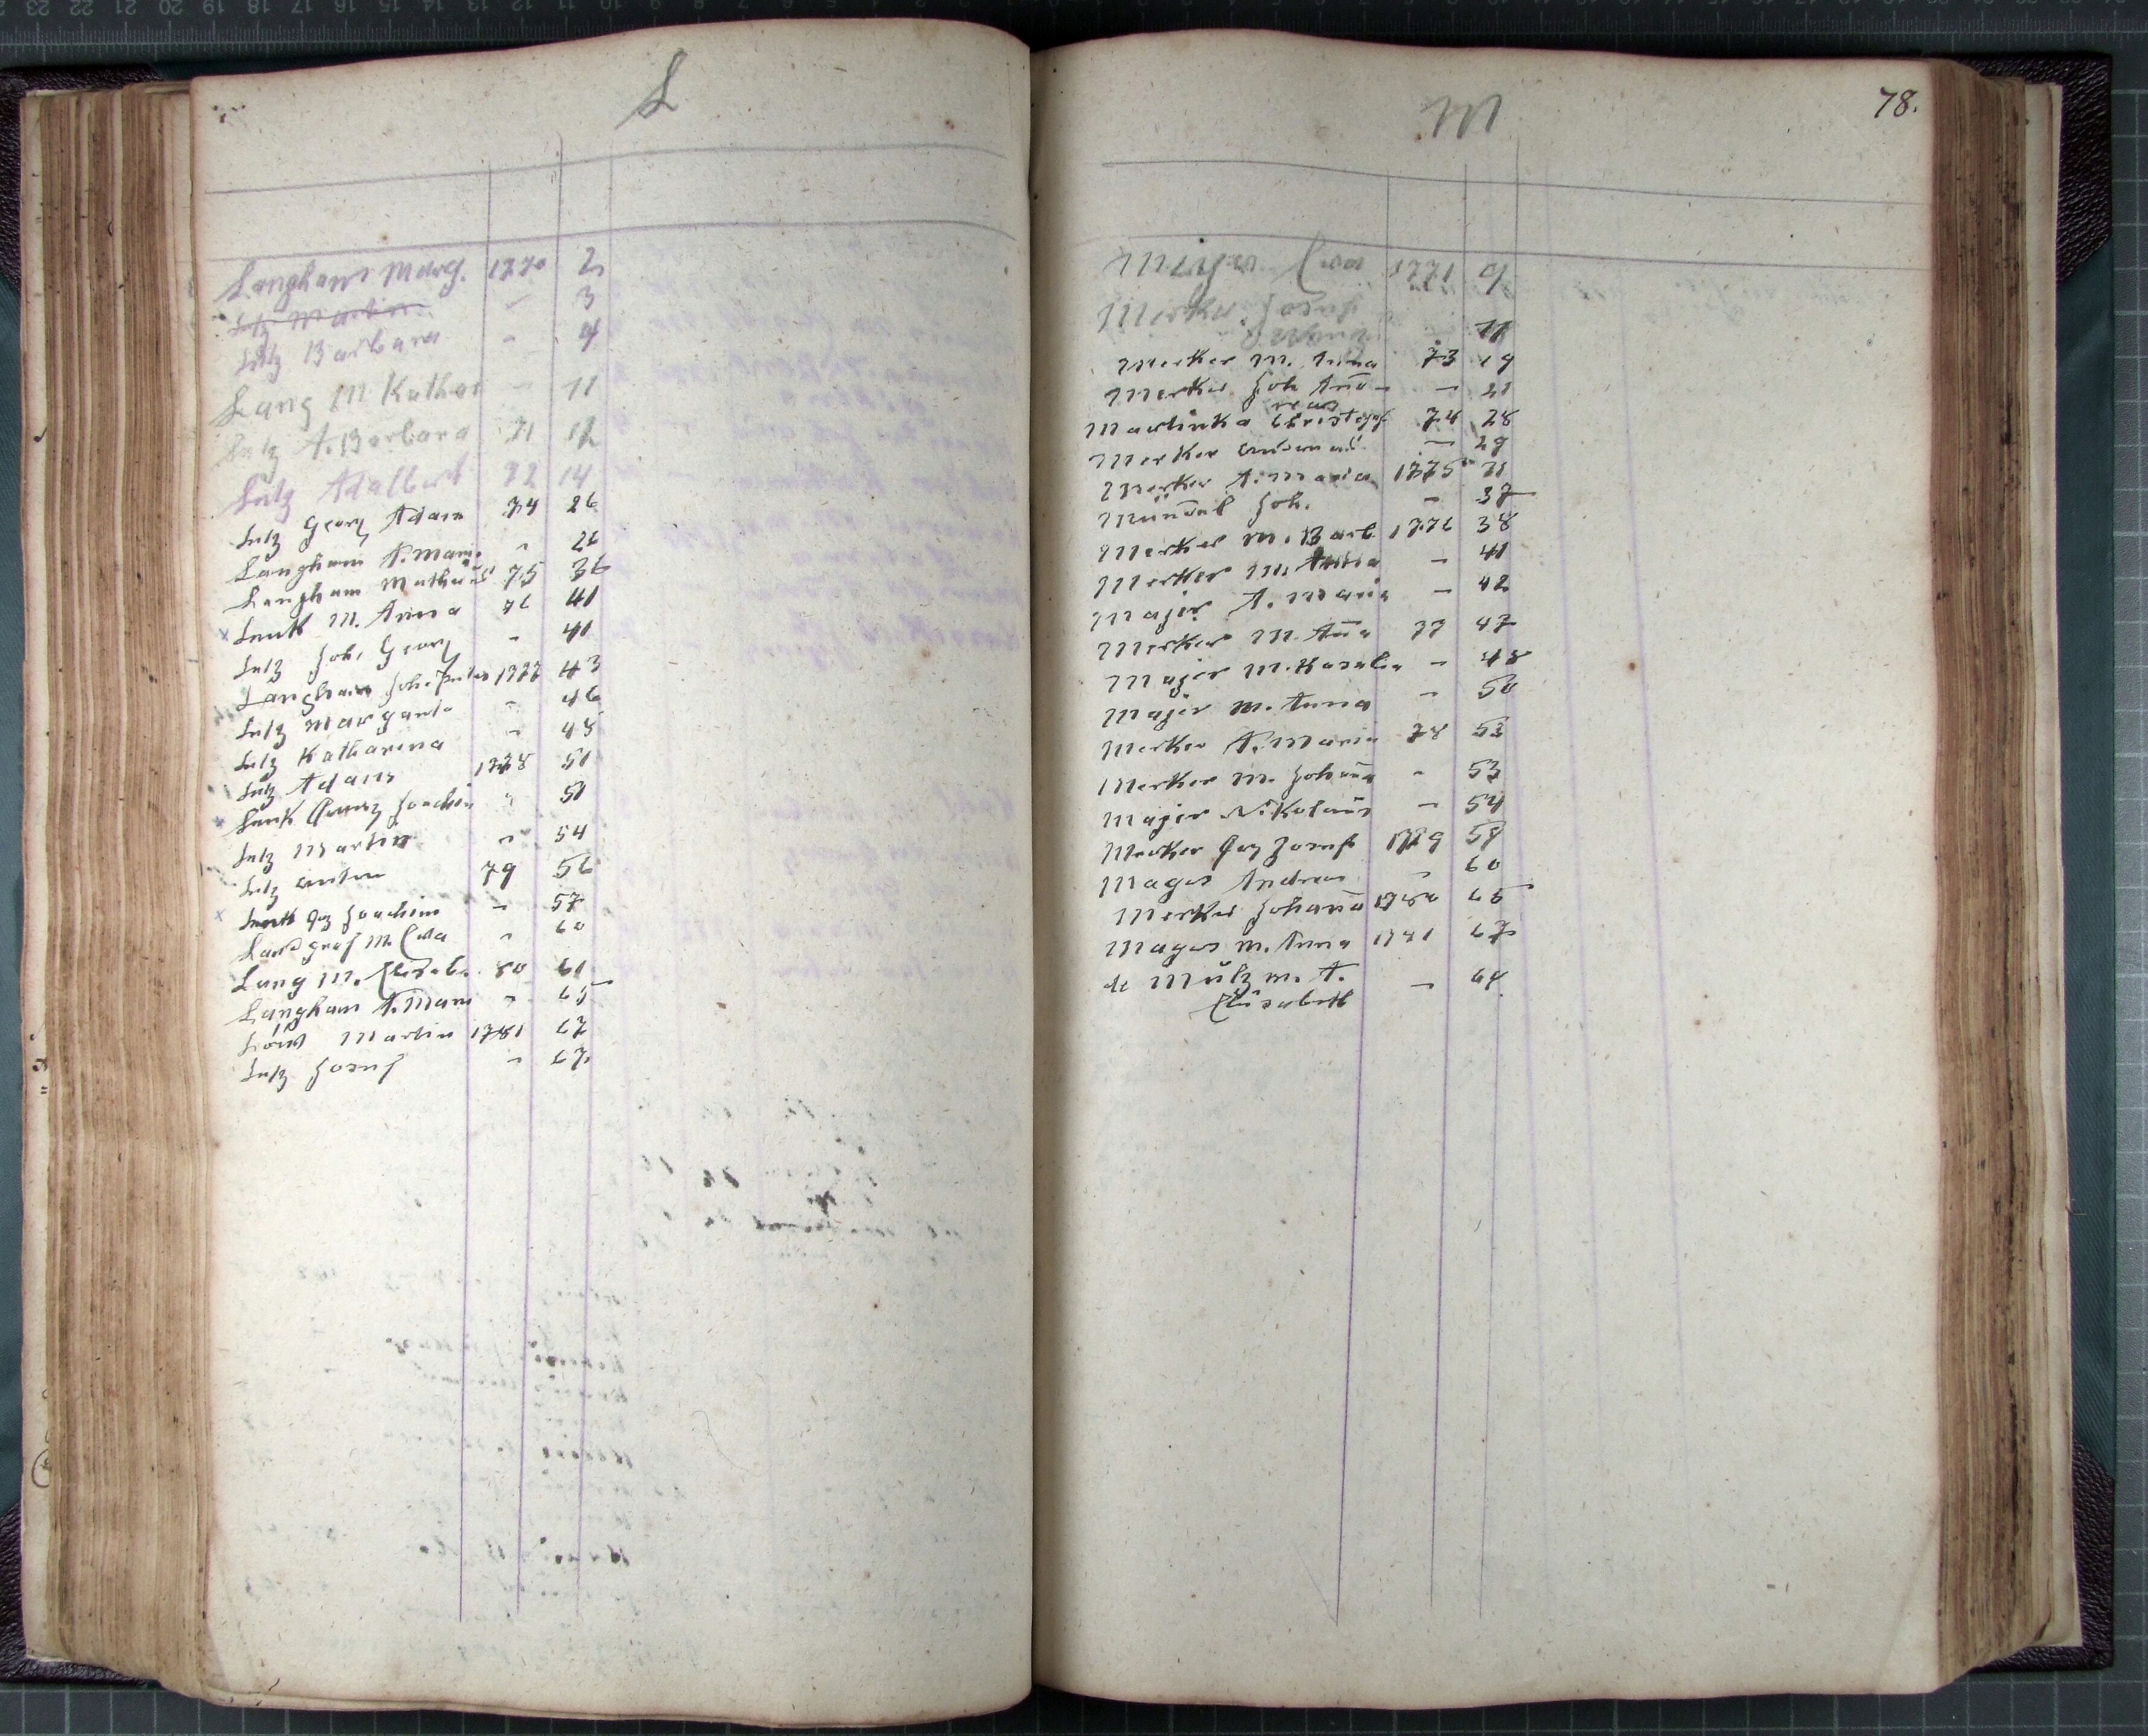 L
Langham Marg. 1770 2
Lutz Martin - 3
Lutz Barbara - 4
Lang M Kathar - 11
Lutz A. Barbara 71 12
Lutz Adalbert 72 14
Lutz Georg Adam 74 26
Langham A. Maria "
Langham Mathias 75
Lenk M. Anna 76 41
Lutz Joh. Georg - 41
Langham Joh. Peter 1777 43
Lutz Margareta - 46
Lutz Katharina - 48
Lutz Adam 1778 51
Lenk Franz Joachim " 51
Lutz Martin " 54
Lutz Anton 79 56
Lenk Frz Joachim - 57
Landgraf M. Eva " 60
Lang M. Elisab. 80 61
Langham A. Maria " 65
Martin 1781 67
Lutz Josef " 67
78.
M
Eva 1771 9
Merker Josef
Merker M. Anna 73 19
Merker Joh - 21
Christoph 74 28
Merker - 29
Merker A. Maria 1775 31
Joh. - 37
Merker M. Barb 1776 38
Merker M. Anna - 41
Majer A. Maria - 42
Merker M. Aña 77 47
Majer M. Rosalia - 48
Majer M. Anna - 50
Merker A. Maria 78 53
Merker M. Johana - 53
Majer Nikolaus - 54
Merker Frz Josef 1779 58
Mager Andreas - 60
Merker Johana 1780 65
Mager M. Anna 1781 67
de Mütz M. A. - 69
Elisabeth